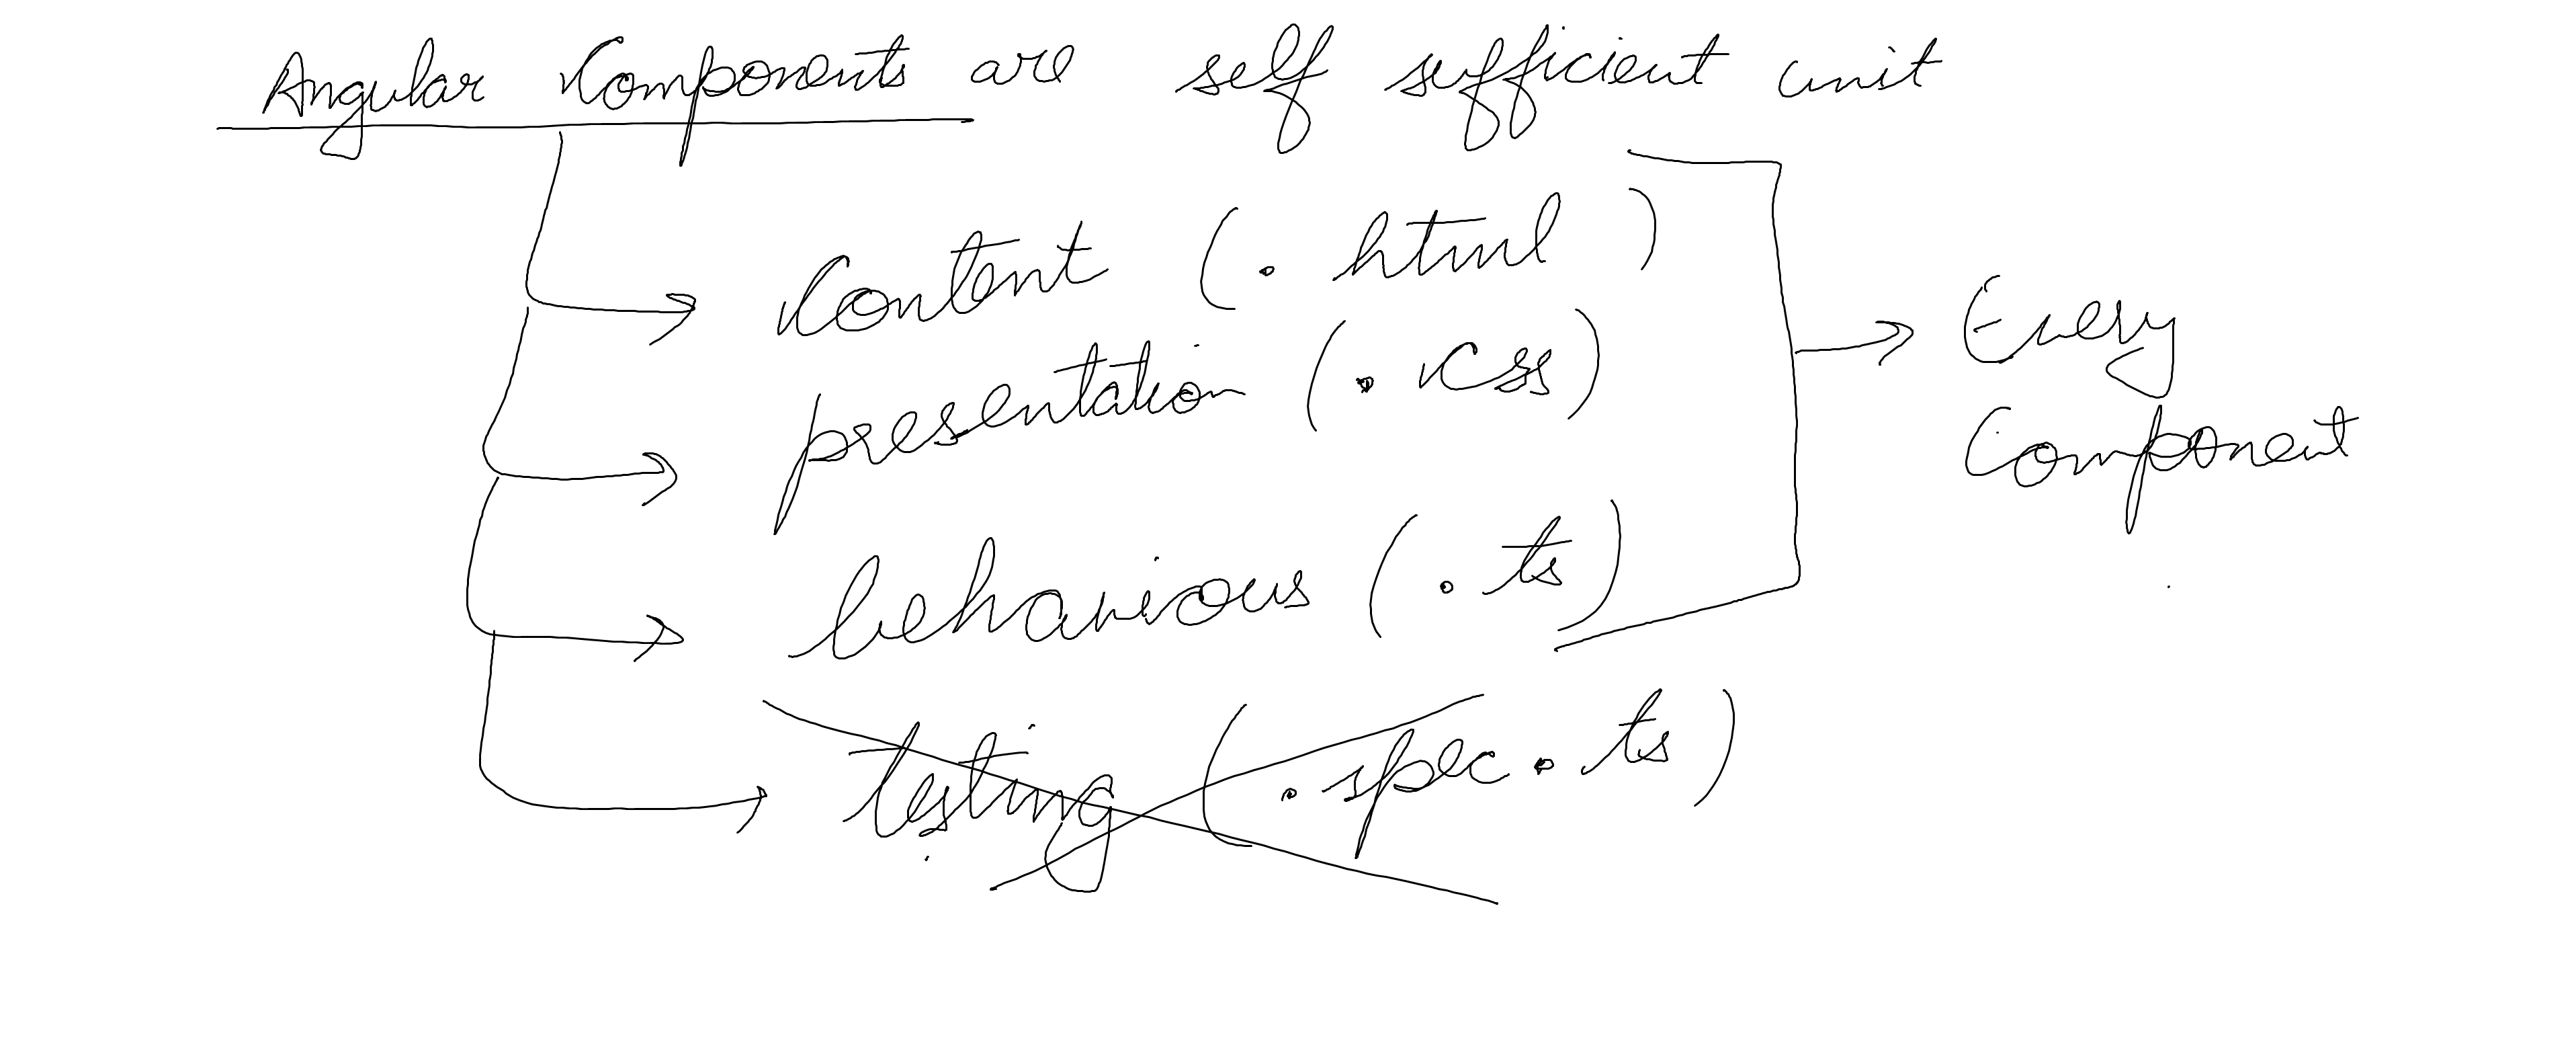 Angular Components are self sufficient unit
Content (.html)
presentation (.css)
behaviour (.ts)
testing (.spec.ts)
Every
Component